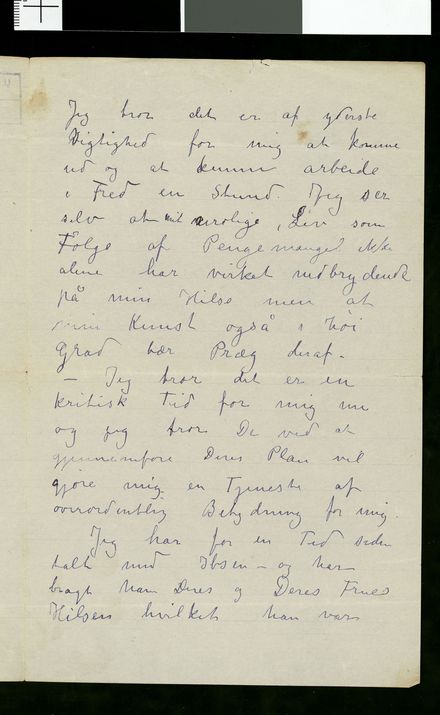 Jeg tror det er af yderste
Vigtighed for mig at komme
ud og at kunne arbeide
i Fred en Stund. Jeg ser
selv at mit urolige Liv som
Følge af Pengemangel ikke
alene har virket nedbrydende
på min Hilse men at
min Kunst også i høi
Grad bær Præg deraf –
– Jeg tror det er en
kritisk Tid for mig nu
og jeg tror De ved at
gjennemføre Deres Plan vil
gjøre mig en Tjeneste af
overordentlig Betydning for mig.
Jeg har for en Tid siden
talt med Ibsen – og har
bragt ham Deres og Deres Frues
Hilsen hvilket han var